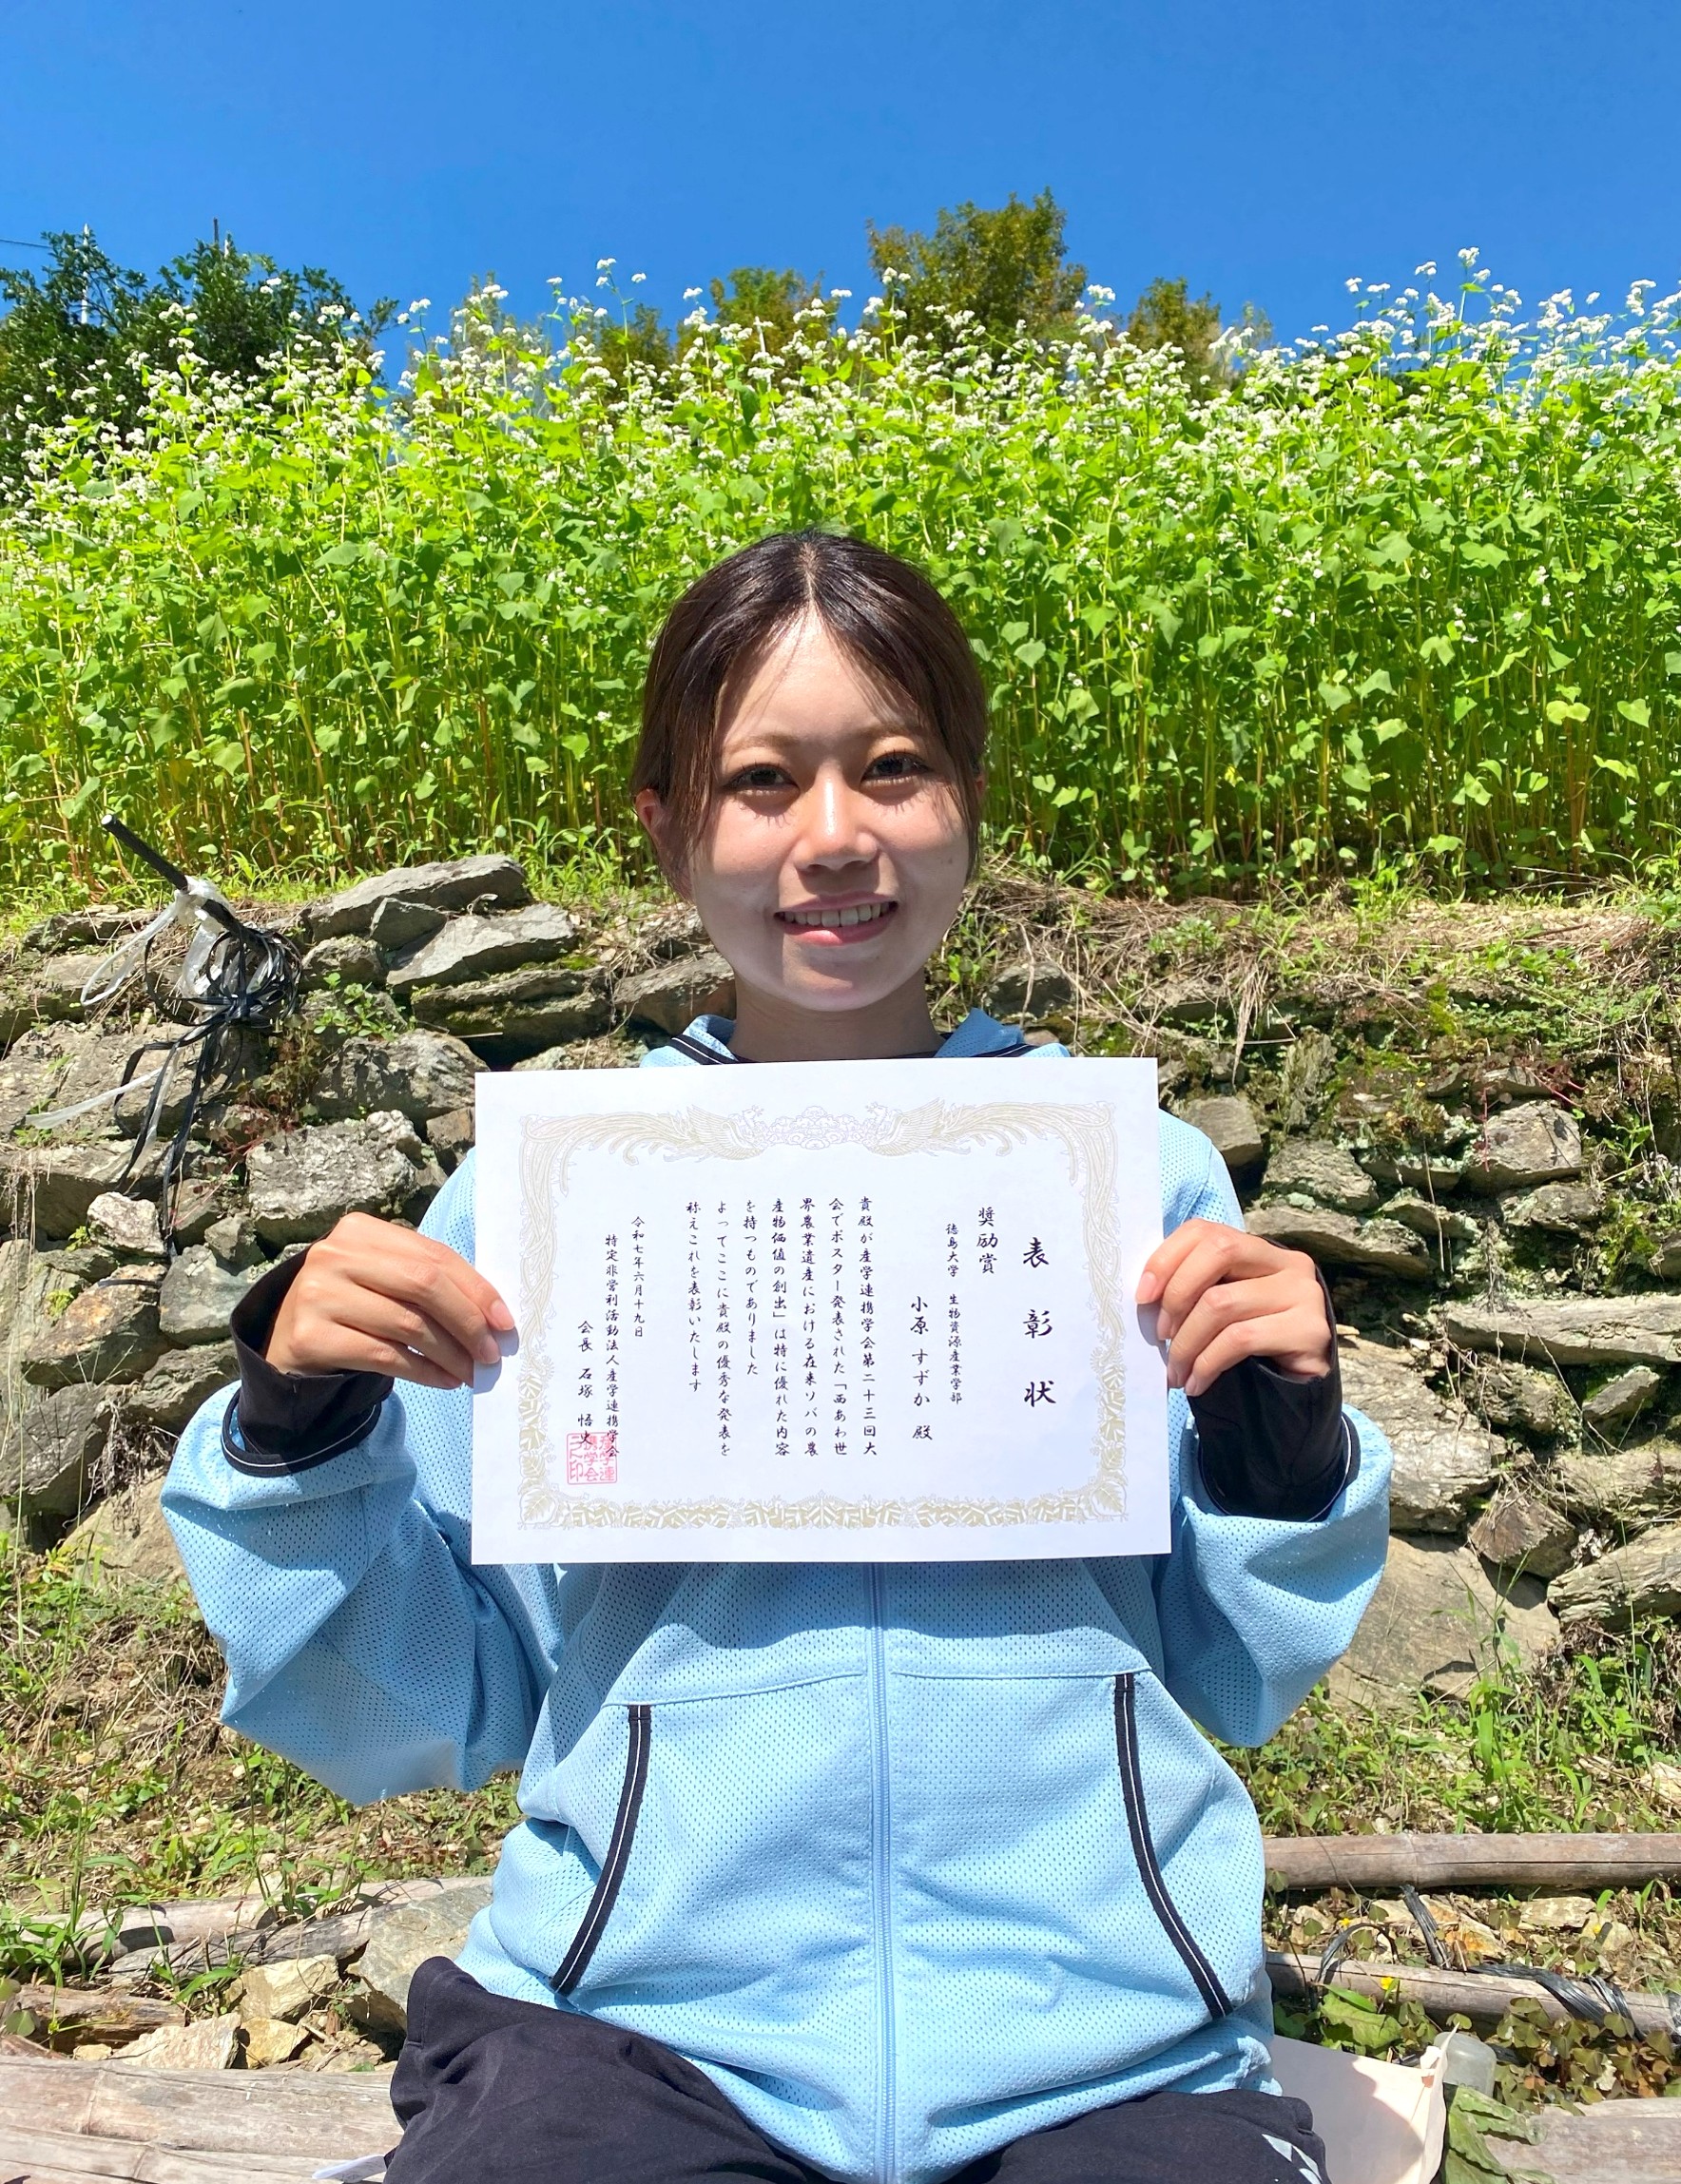 表彰状
奨励賞
徳島大学 生物資源産業学部
小原 すずか 殿
貴殿が産学連携学会第二十三回大
会でポスター発表された「西あわ世
界農業遺産における在来ソバの農
産物価値の創出」は特に優れた内容
を持つものでありました
よってここに貴殿の優秀な発表を
称えこれを表彰いたします
令和七年六月十九日
特定非営利活動法人産学連携学会
会長 石塚 悟史